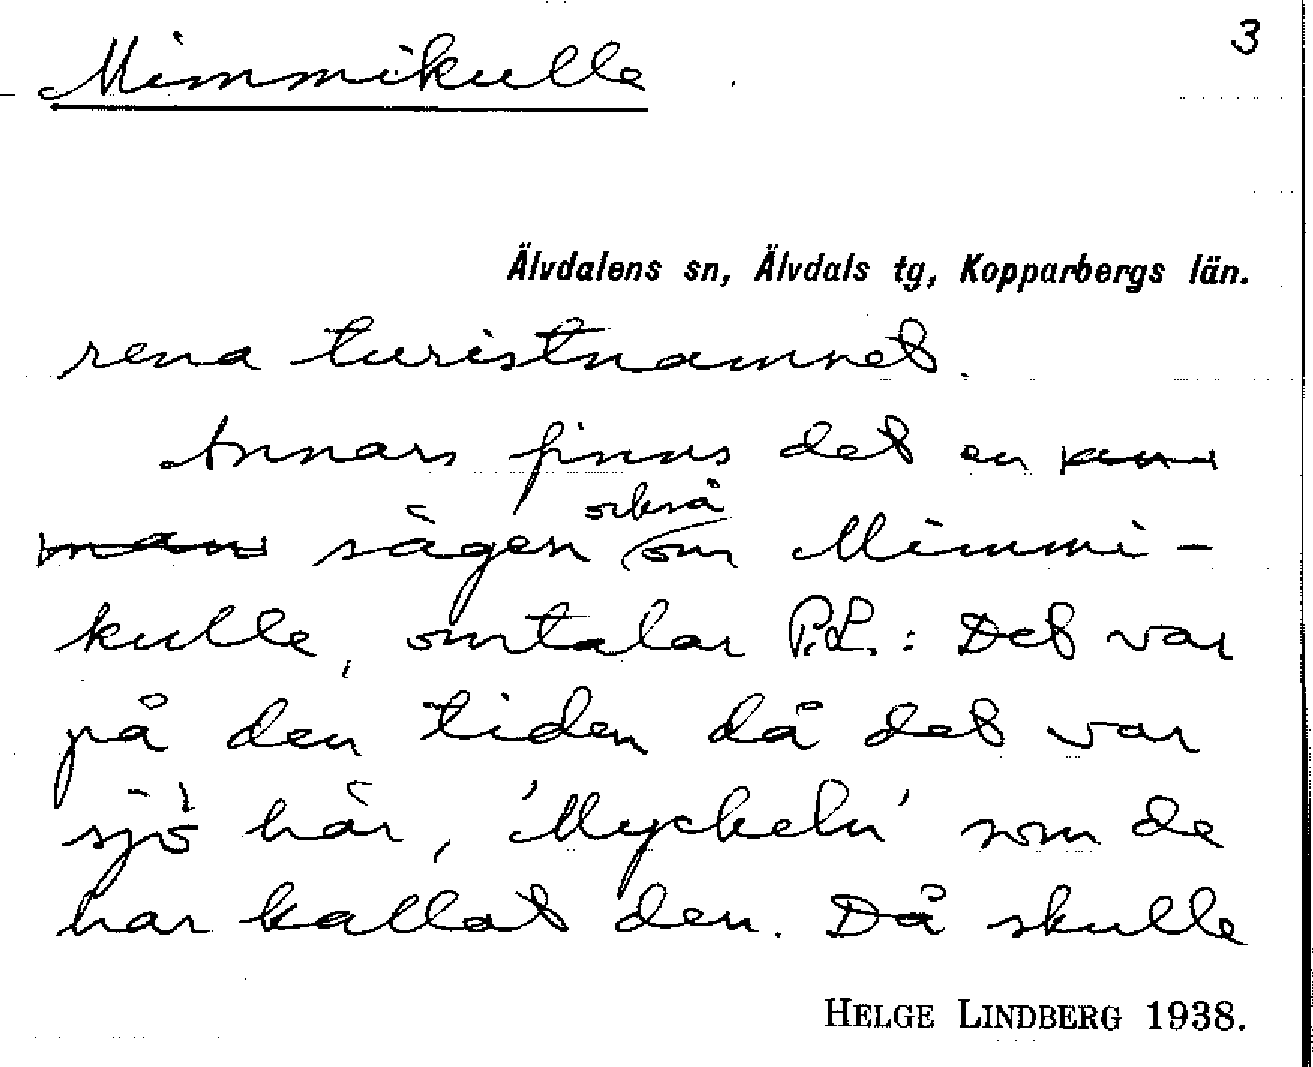 Mimmikulle
3
Älvdalens sn, Älvdals tg, Kopparbergs län.
rena turistnamnet.
Annars finns det en
också
sägen om Mimmi-
kulle, omtalar P.L.: Det var
på den tiden då det var
sjö här, 'Myckeln' som de
har kallat den. Då skulle
HELGE LINDBERG 1938.